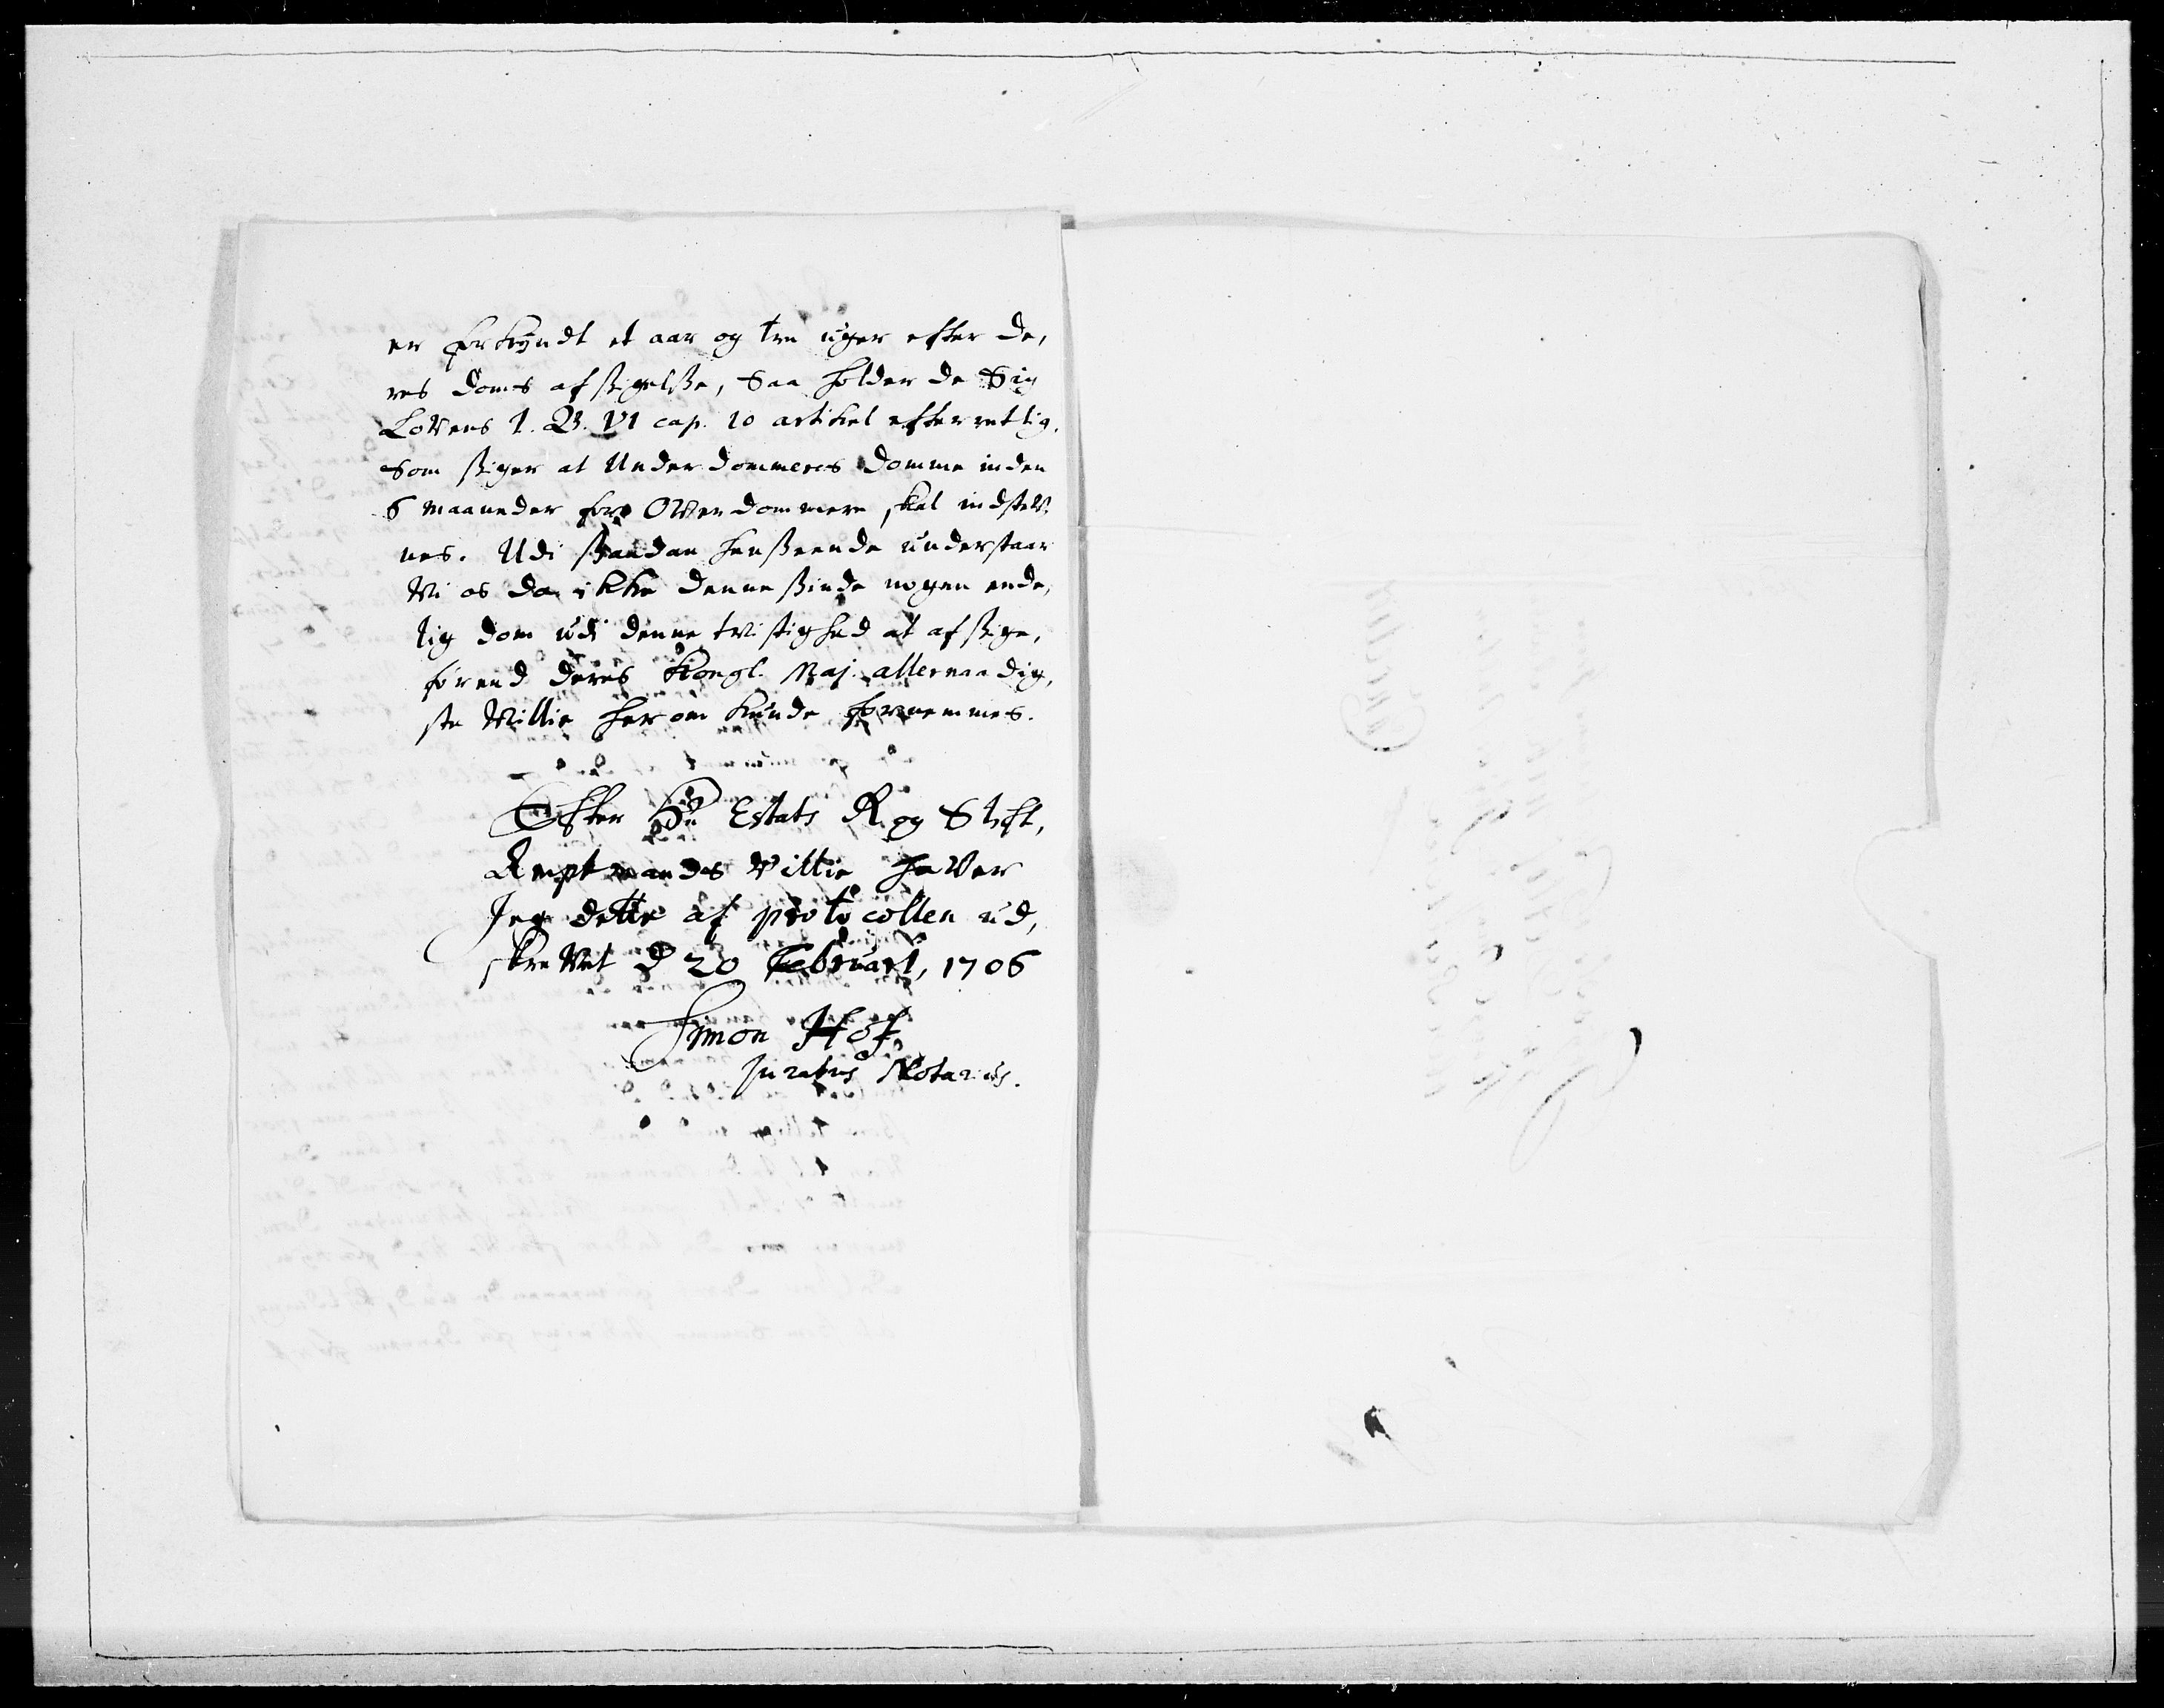 er forkyndt et aar og tre uger efter de,
res doms afsigelsse, Saa holder de Sig
Lovens 1. B. VI cap. 10 artikel efterrettlig.
Som siger at Underdommeres domme inden
6 maaneder for Overdommere skal indstev,
nes. Udi saadan henseende understaar
Vi os da ikke denne sinde nogen ende,
lig dom udi denne tvistighed at afsige,
førend deres Kongl. Maj. allernaadig,
ste Villie herom kunde fornemmes.
Efter Hr Estats R. og Stift,
Amptmands villie haver
Jeg dette af protocollen ud,
skrevet d 20 Februari, 1706
Simon Hof
Juratus Notarius.